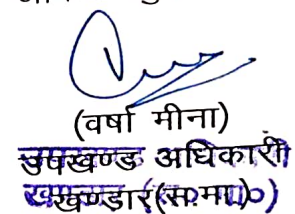 (वर्षा मीना)
उपखण्ड अधिकारी
खण्डार(स०मा०)